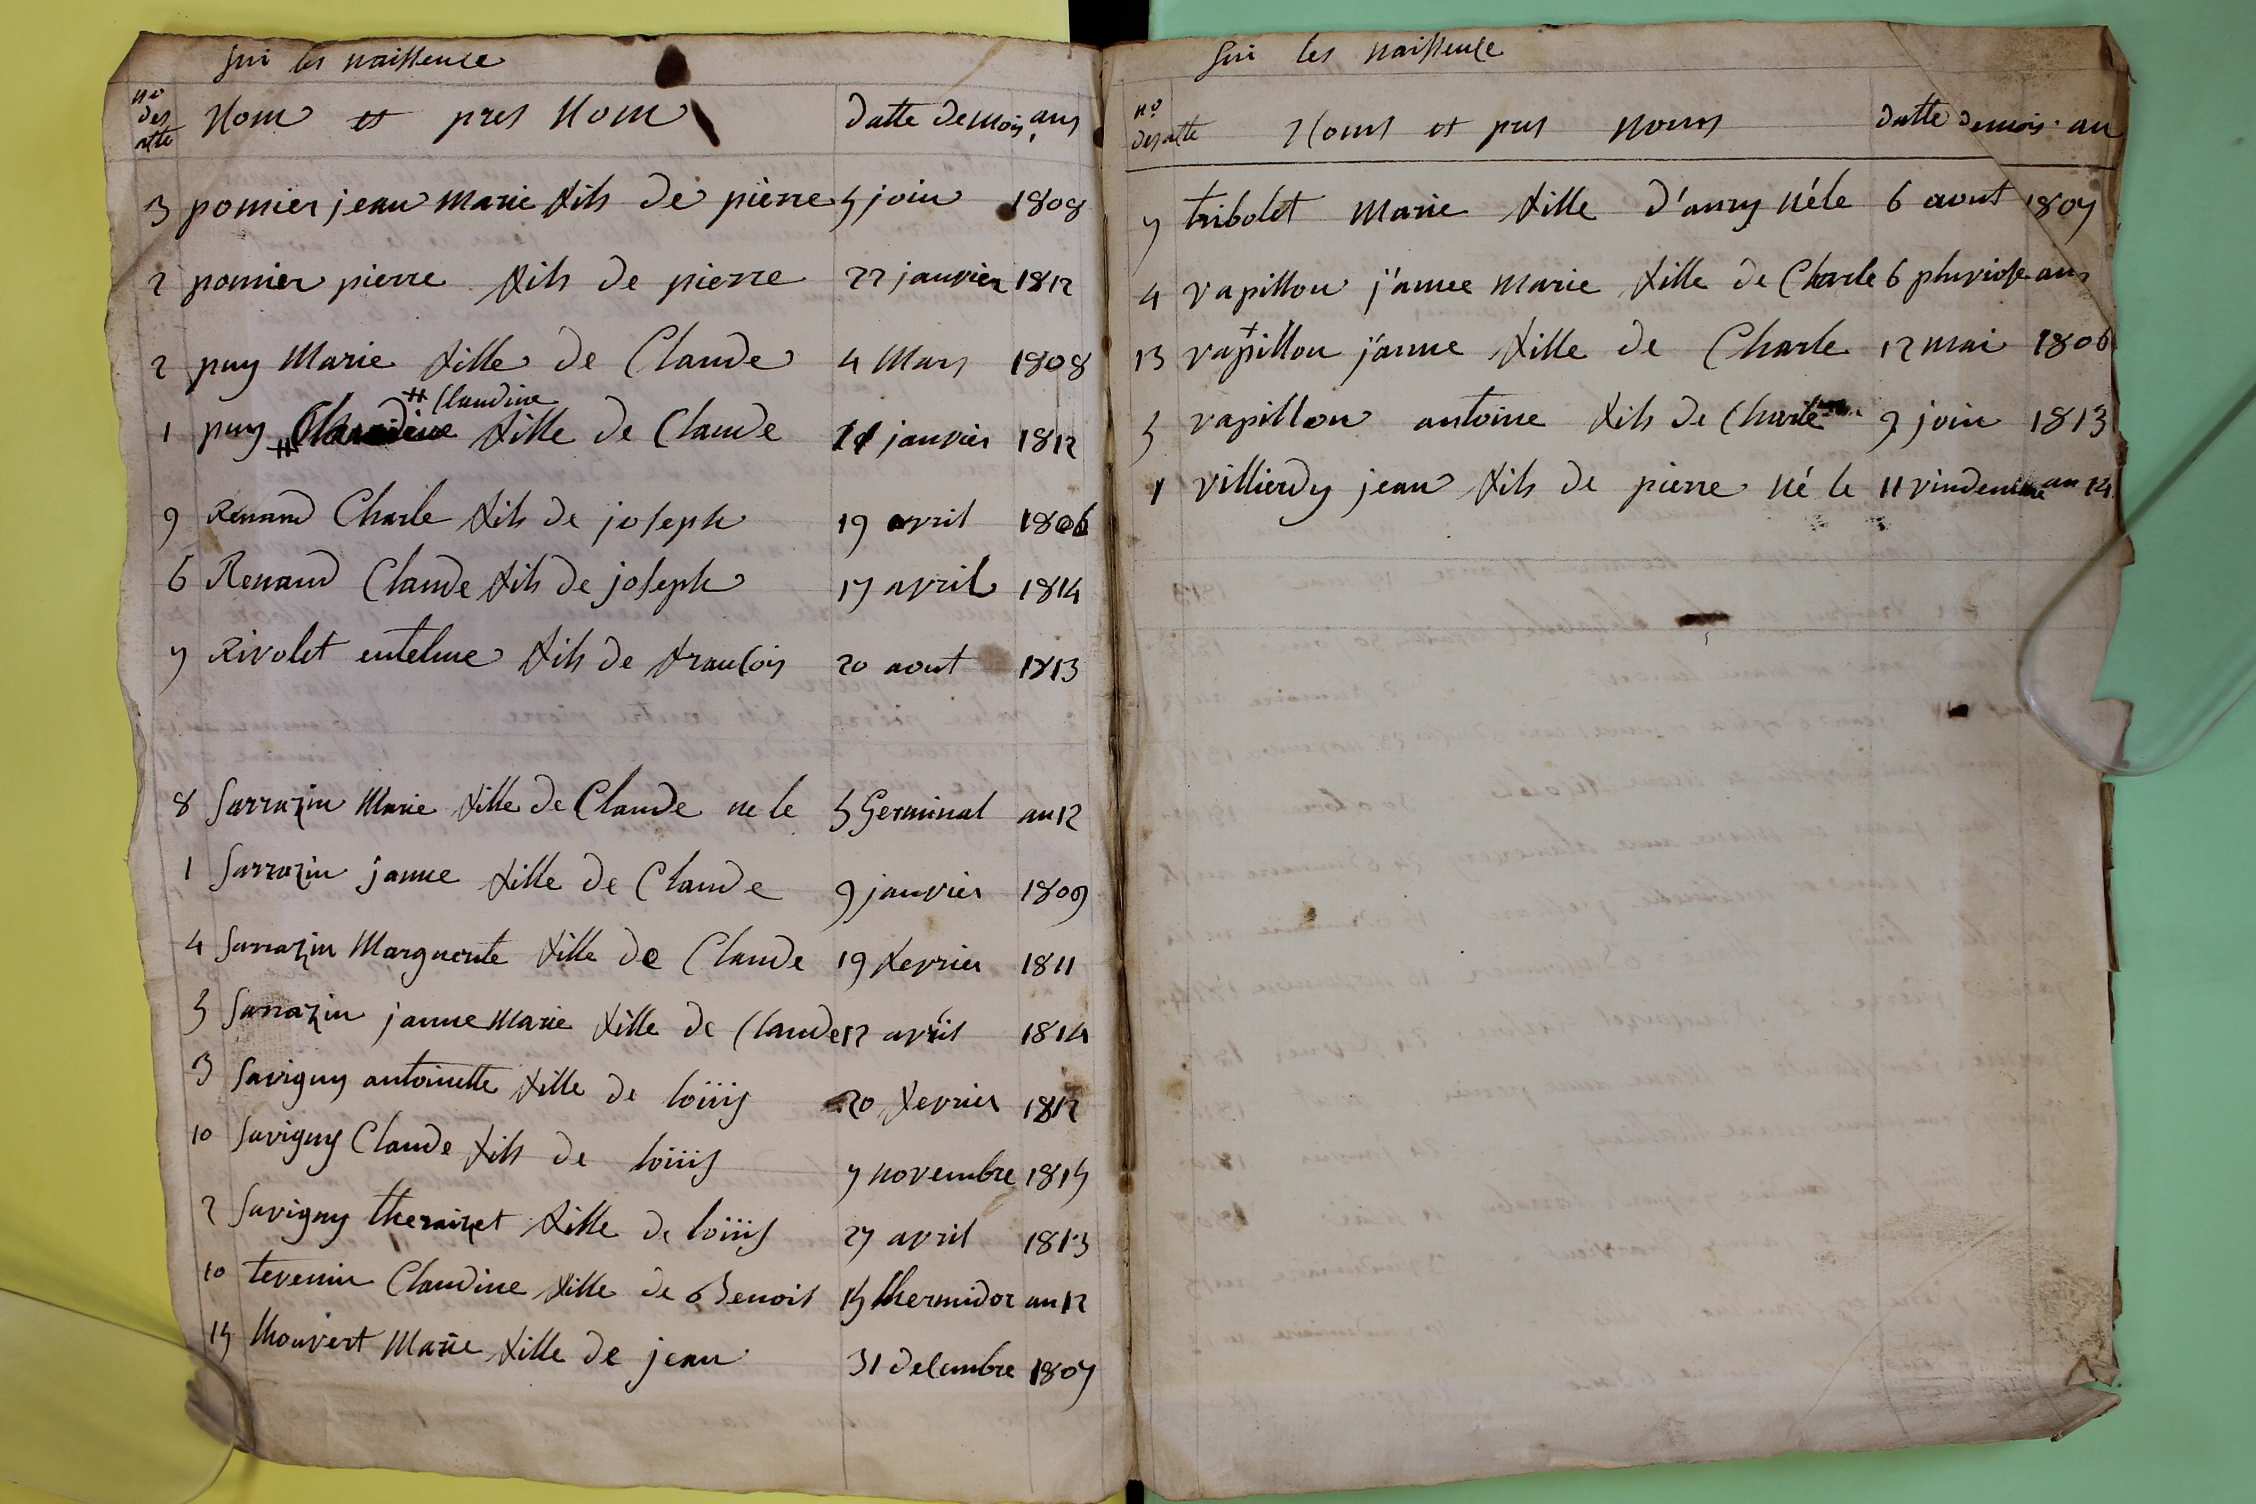 Sui les naissence
no des atte Nom et pres Nom datte de mois ans
3 pomier jean marie fils de pierre 5 join 1808
2 pomier pierre fils de pierre 22 janvier 1812
2 puy Marie fille de Claude 4 Mars 1808
# Claudine
1 puy # Claudine fille de Claude 11 janvier 1812
9 Renand Charle fils de joseph 19 avril 1806
6 Renand Claude fils de joseph 17 avril 1814
7 Rivolet entelme fils de francois 20 aout 1813
8 Sarrazin Marie fille de Claude ne le 5 Germinal an 12
1 Sarrazin janne fille de Claude 9 janvier 1809
4 Sarrazin Marguerite fille de Claude 19 fevrier 1811
5 Sarrazin janne Marie fille de Claude 12 avril 1814
3 Savigny antoinette fille de loüis 20 fevrier 1812
10 Savigny Claude fils de loüis 7 novembre 1815
2 Savigny fille de loüis 27 avril 1813
10 tevenin Claudine fille de Benoit 15 thermidor an 12
15 thouvert Marie fille de jean 31 decembre 1807
Sui les naissence
no des atte Noms et pres noms datte de mois an
7 tribolet Marie fille d'anry né le 6 aout 1807
4 vapillon janne marie fille de Charle 6 pluviose an
13 vapillon janne fille de Charle 12 mai 1806
5 vapillon antoine fils de Charle 9 join 1813
1 villierdy jean fils de pierre né le 11 an 14